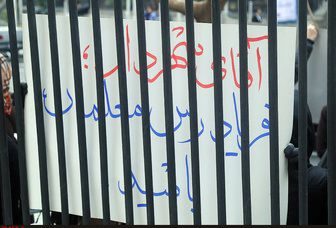 آقای شهردار؛
فریادرس معلمان
باشید